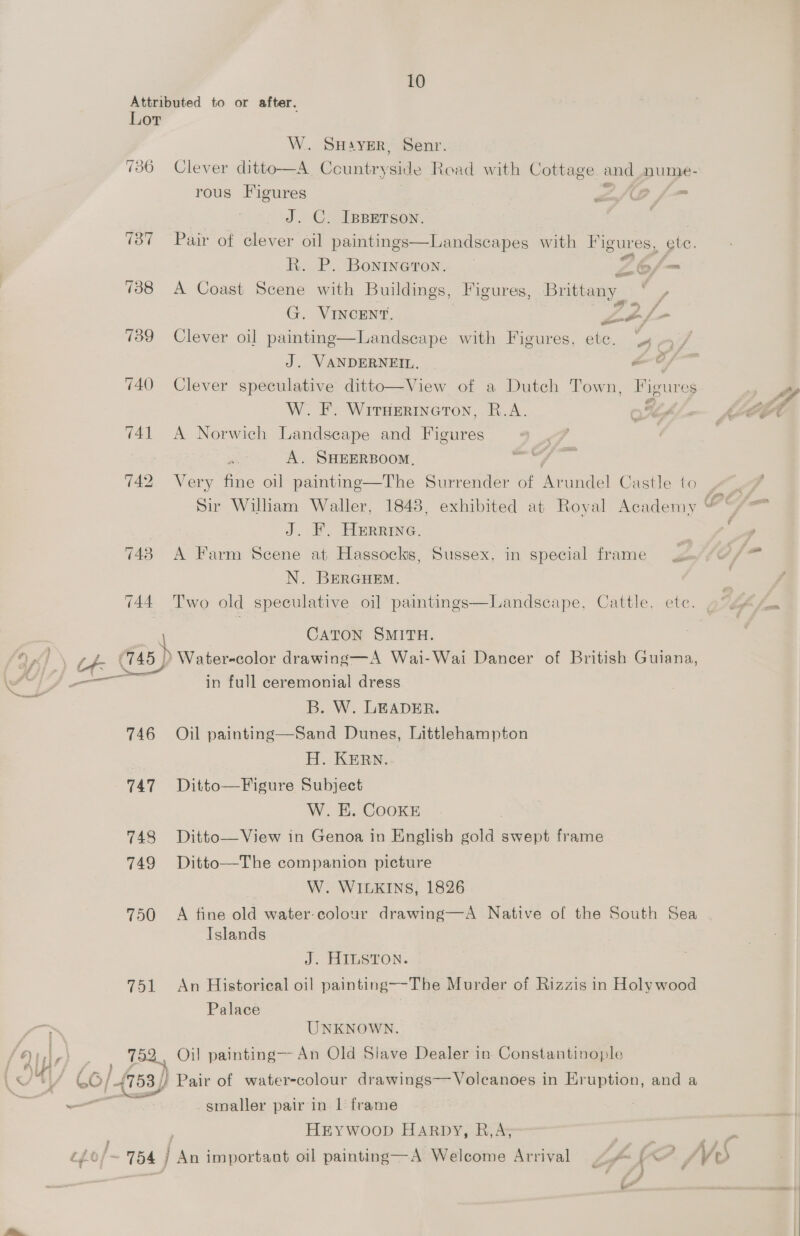 10
Attributed to or after.
Lot
W. Shayer, Senr.
736 Clever ditto—A Countryside Road with Cottage and nume-
rous Figures
J. C. Ibbetson.
737 Pair of clever oil paintings—Landscapes with Figures, etc.
R. P. Bonington. 26/-
738 A Coast Scene with Buildings, Figures, Brittany
G. Vincent. 22/-
739 Clever oil painting—Landscape with Figures, etc.
J. Vanderneil.
740 Clever speculative ditto—View of a Dutch Town, Figures
W. F. Witherington, R.A.
741 A Norwich Landscape and Figures
A. Sheerboom.
742 Very fine oil painting—The Surrender of Arundel Castle to
Sir William Waller, 1843, exhibited at Royal Academy
J. F. Herring.
743 A Farm Scene at Hassocks, Sussex, in special frame
N. Berghem.
744 Two old speculative oil paintings—Landscape, Cattle, etc.
Caton Smith.
745 Water-color drawing—A Wai-Wai Dancer of British Guiana,
in full ceremonial dress
B. W. Leader.
746 Oil painting—Sand Dunes, Littlehampton
H. Kern.
747 Ditto—Figure Subject
W. E. Cooke
748 Ditto—View in Genoa in English gold swept frame
749 Ditto—The companion picture
W. Wilkins, 1826
750 A fine old water-colour drawing—A Native of the South Sea
Islands
J. Hilston.
751 An Historical oil painting—The Murder of Rizzis in Holywood
Palace
Unknown.
752 Oil painting—An Old Slave Dealer in Constantinople
60/ 753 Pair of water-colour drawings—Volcanoes in Eruption, and a
smaller pair in 1 frame
Heywood Hardy, R,A,
754 An important oil painting—A Welcome Arrival